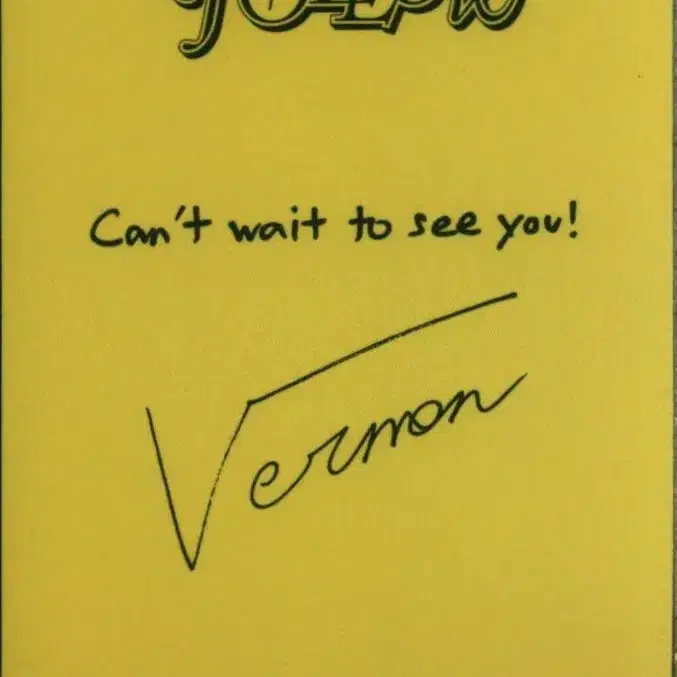 Can't wait to see you!
Vernon